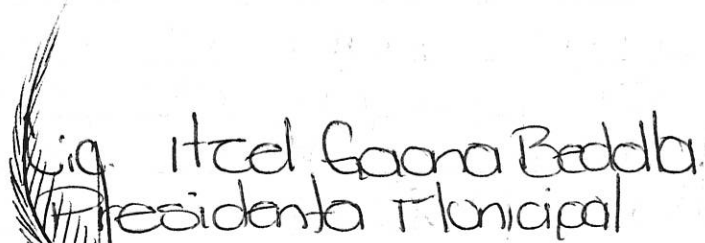 Lig. Itcel Gaona Bedolla
Presidenta Municipal